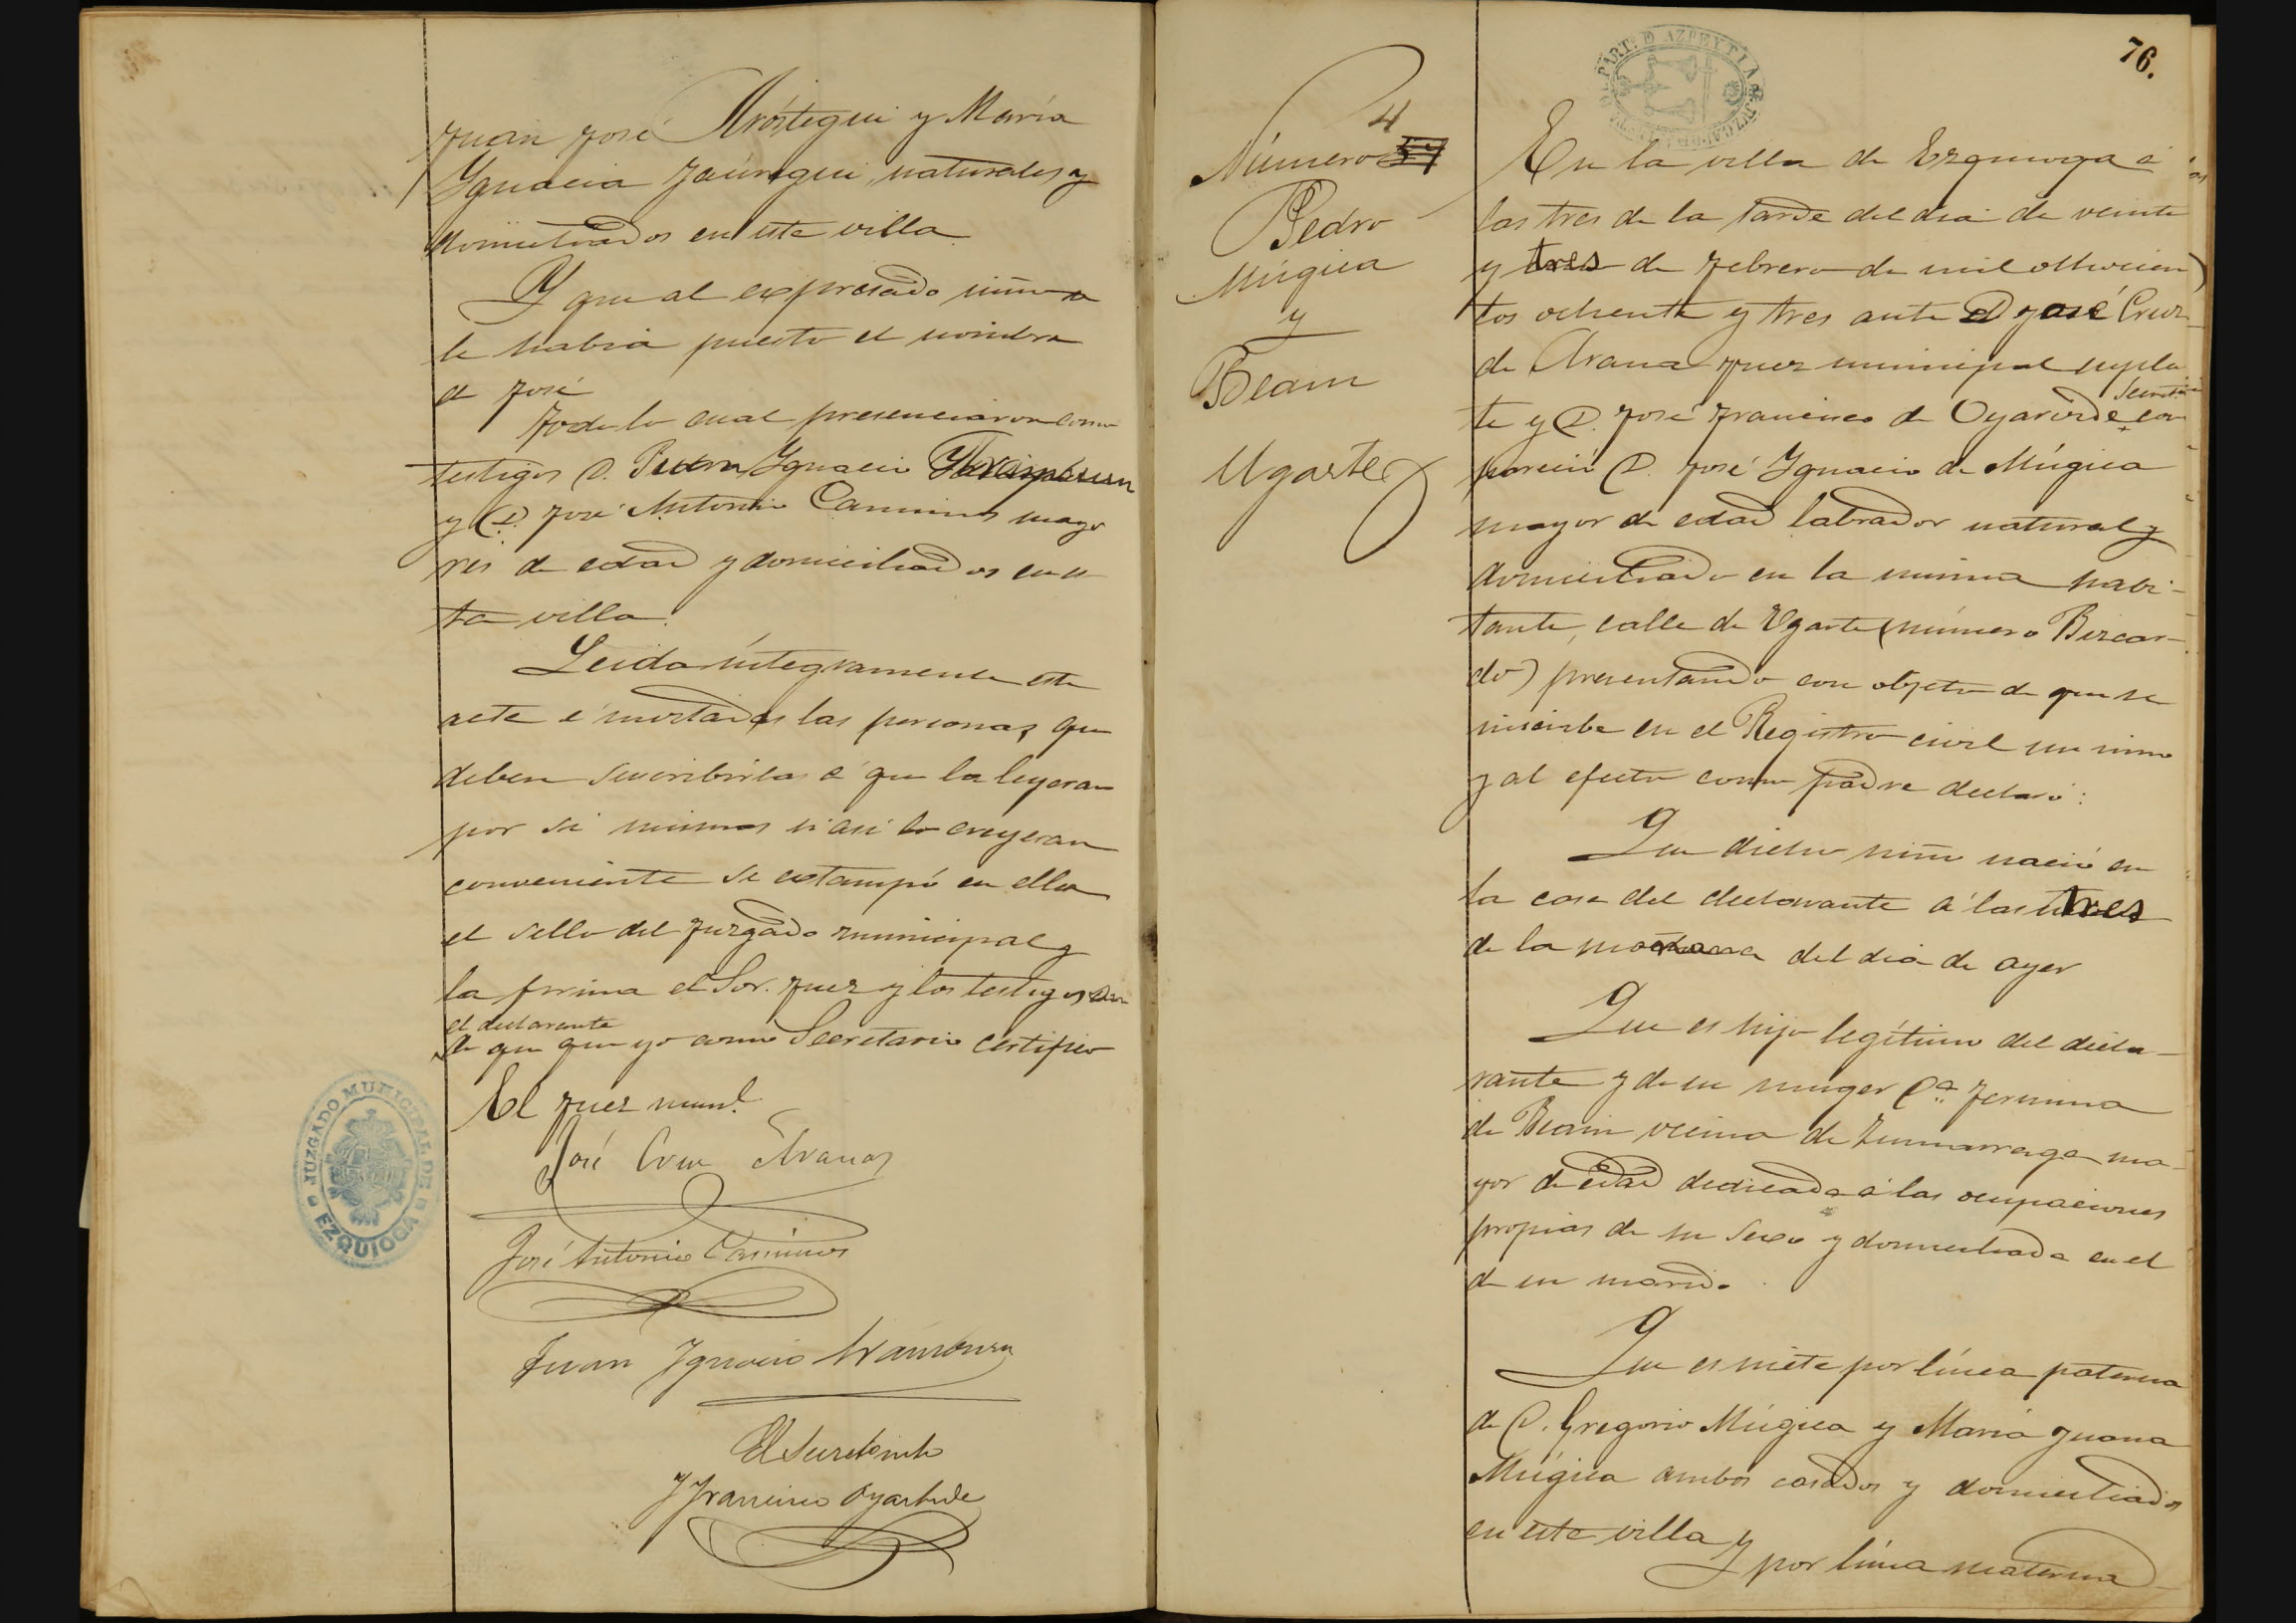 Juan José Aróstegui y María
Ygnacia Jaúregui, naturales y
domiciliados en esta villa
Y que al expresado niño
le habia puesto el nombre
de José
Todo lo cual presenciaron como
testigos D. Ygnacio
y D. José Antonio Caminos mayo
res de edad y domiciliados en es
ta villa.
Leida íntegramente este
acta é invitadas las personas que
deben suscribirlas á que la leyeran
por si mismos si asi lo creyeran
conveniente se estampó en ella
el sello del Juzgado municipal y
la firma el Sor. Juez y los testigos
el declarante
de que que yo como Secretario certifico
El Juez munl.
José Cruz Arana
José Antonio Caminos
Juan Ygnacio
El Secretario
J Francisco Oyarbide
JUZGADO MUNICIPAL DE EZQUIOGA
76.
PART. D AZPEYTIA
Número 4
Pedro
Múgica
y
Beain
Ugarte
En la villa de Ezquioga á
las tres de la tarde del dia de veinte
y tres de Febrero de mil ochocien
tos ochenta y tres ante D José Cruz
de Arana Juez municipal suplen
te y D. José Francisco de Oyarvide Secretario com
pareció D. José Ygnacio de Múgica
mayor de edad labrador natural y
domiciliado en la misma habi-
tante, calle de Ugarte (número Bizcar-
do) presentando con objeto de que se
inscriba en el Registro civil un niño
y al efecto como padre declaró:
Que dicho niño nació en
la casa del declarante á las tres
de la mañana del dia de ayer
Que es hijo legítimo del decla-
rante y de su muger Da. Fermina
de Beain vecina de Zumarraga ma-
yor de edad dedicada á las ocupaciones
propias de su sexo y domiciliada en el
de su marido.
Que es nieto por línea paterna
de D. Gregorio Múgica y María Juana
Múgica ambos casados y domiciliados
en esta villa
Y por línea materna